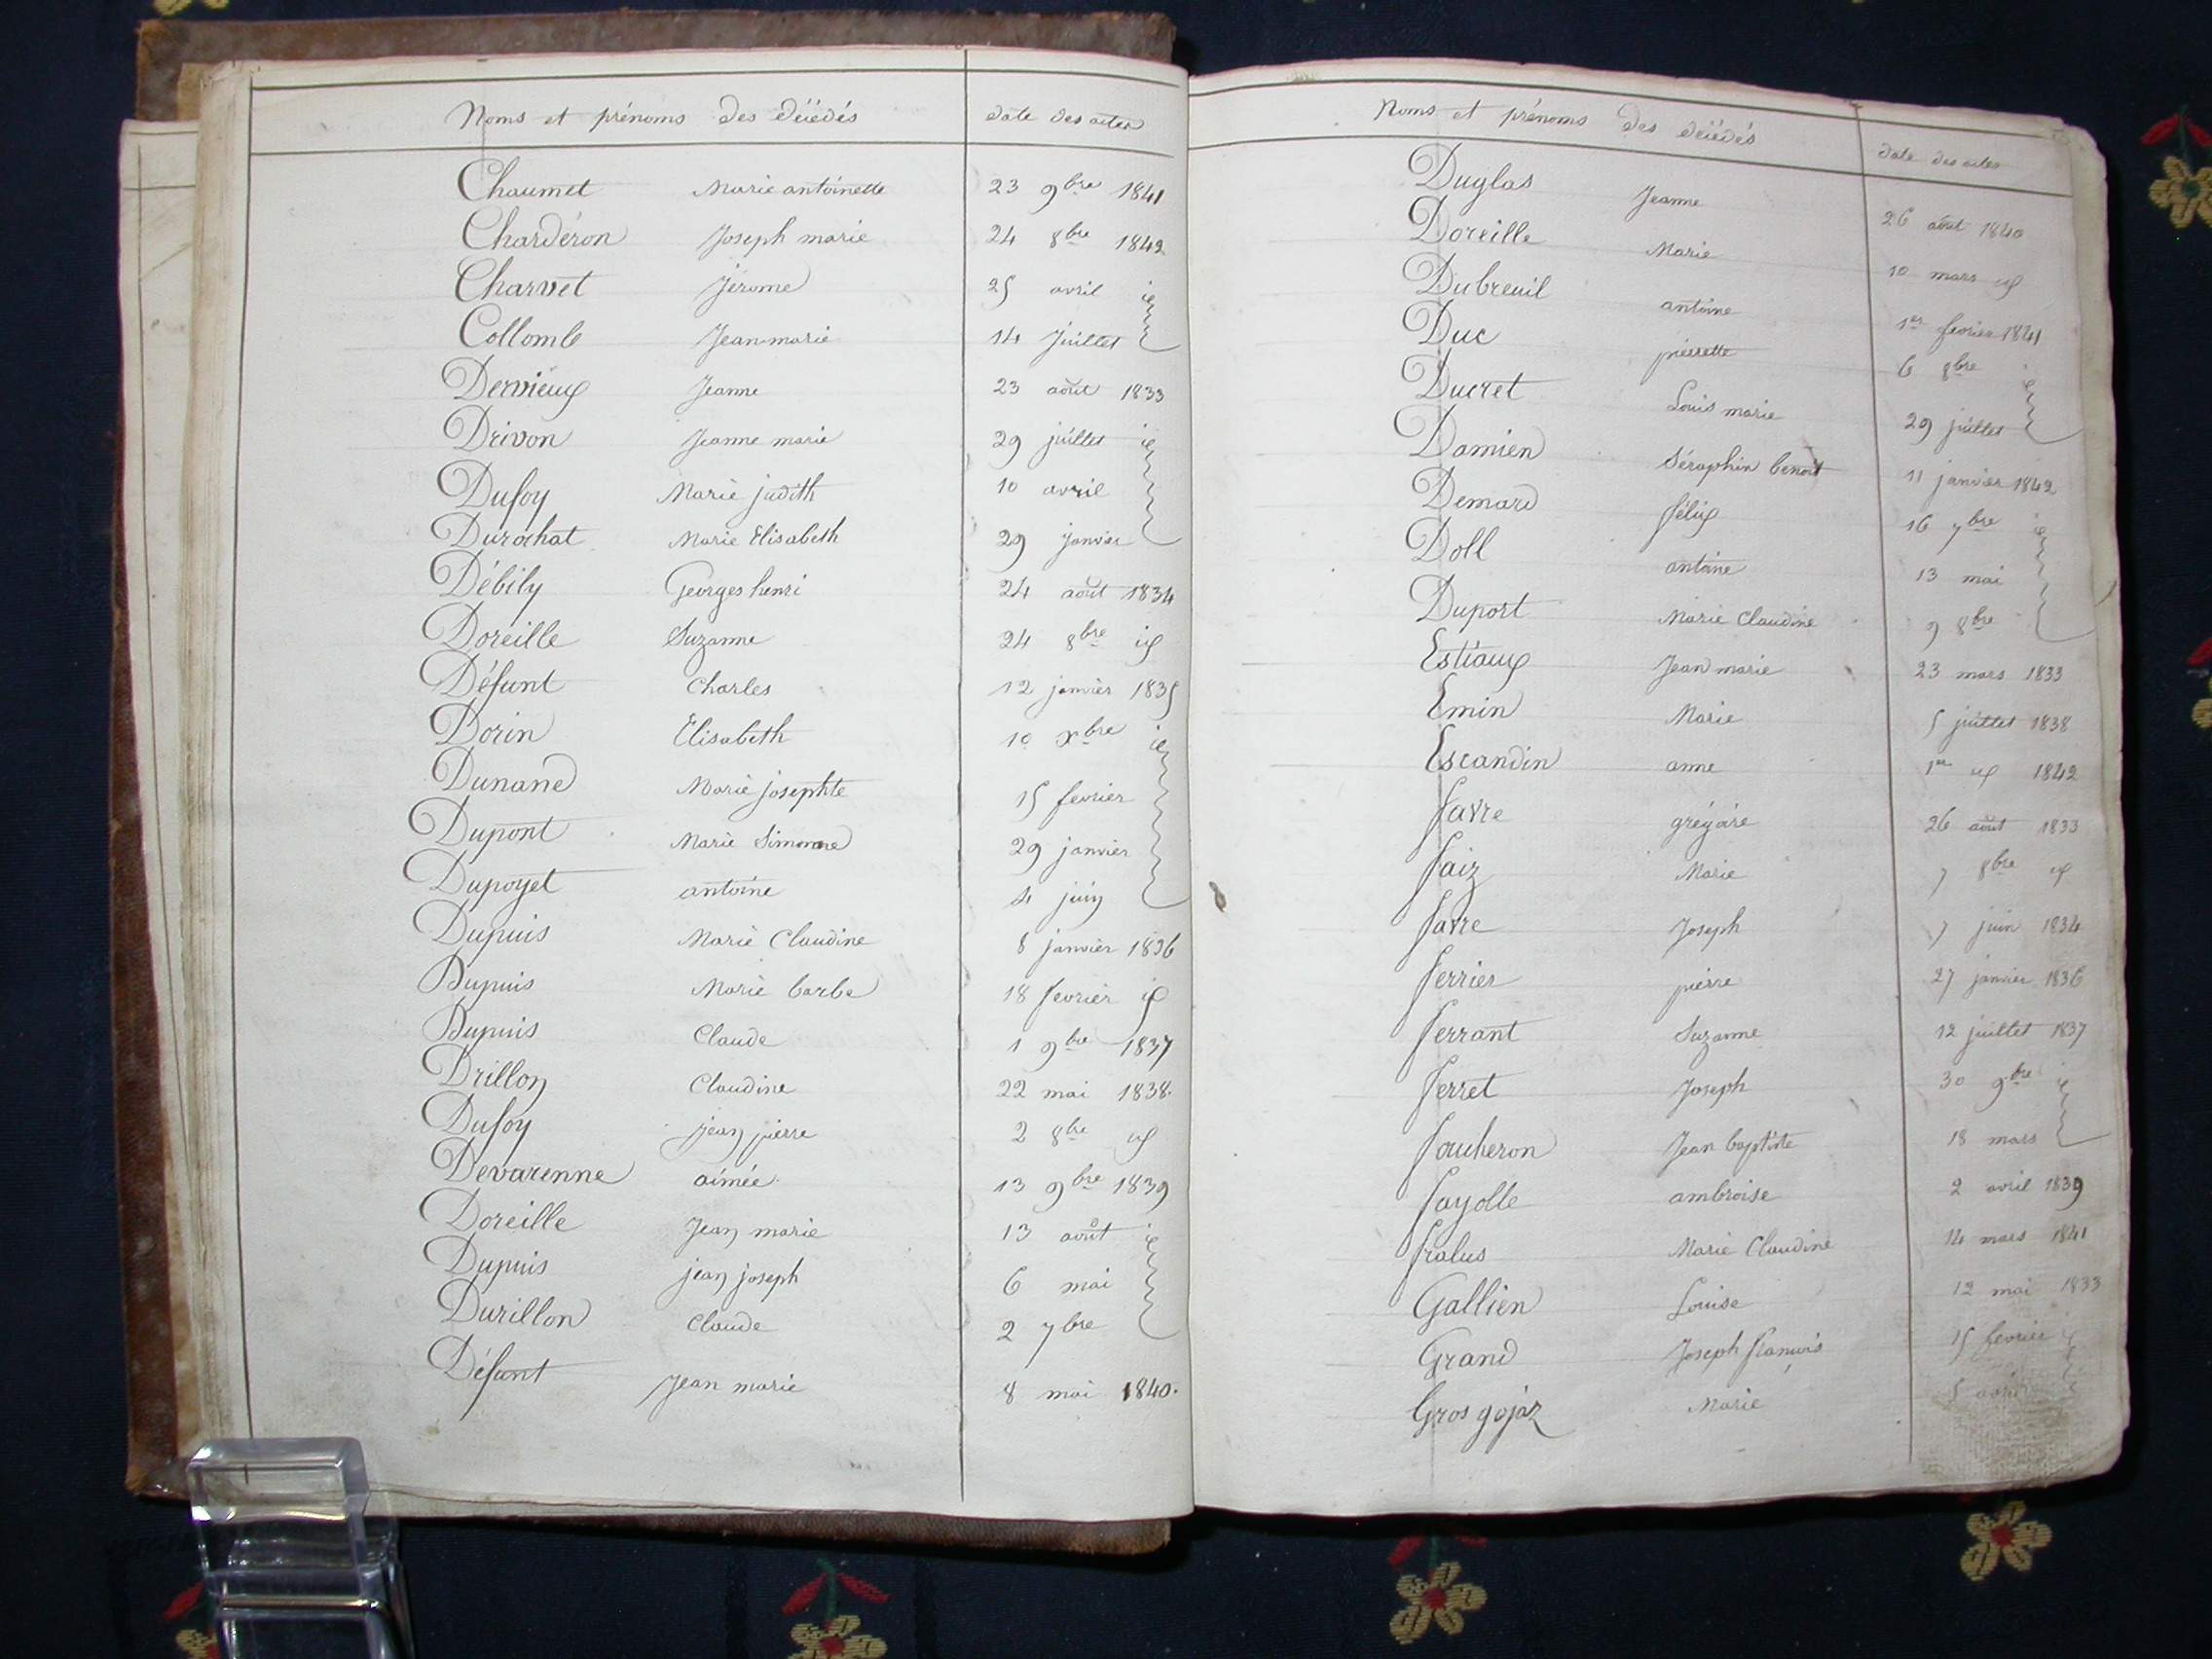 Noms et prénoms des décédés date des actes
Chaumet Marie antoinette 23 9bre 1841
Chardéron Joseph marie 24 8bre 1842
Charvet Jérome 25 avril id
Collomb Jean-marie 14 Juillet
Dervieux Jeanne 23 août 1833
Drivon Jeanne marie 29 juillet id
Dufoy Marie judith 10 avril
Durochat Marie Elisabeth 29 Janvier
Débily Georges henri 24 août 1834
Doreille Suzanne 24 8bre id
Défunt Charles 12 janvier 1835
Dorin Elisabeth 10 Xbre id
Dunand Marie josephte 15 fevrier
Dupont Marie Simonne 29 janvier
Dupoyet antoine 4 juin
Dupuis Marie Claudine 8 janvier 1836
Dupuis Marie barbe 18 fevrier id
Dupuis Claude 1 9bre 1837
Drillon Claudine 22 mai 1838.
Dufoy jean pierre 2 8bre id
Devarenne aimée 13 9bre 1839
Doreille Jean marie 13 août id
Dupuis jean joseph 6 mai
Durillon Claude 2 7bre
Défunt Jean marie 8 mai 1840.
Noms et prénoms des décédés date des actes
Duglas Jeanne 26 août 1840
Doreille Marie 10 mars id
Dubreuil antoine 1er fevrier 1841
Duc pierrette 6 8bre id
Ducret Louis marie 29 juillet
Damien Séraphin benoit 11 janvier 1842
Demard félix 16 7bre id
Doll antoine 13 mai
Duport Marie Claudine 9 8bre
Estiaux Jean marie 23 mars 1833
Emin Marie 5 juillet 1838
Escandin anne 1er id 1842
favre grégoire 26 août 1833
faiz Marie 7 8bre id
favre Joseph 7 juin 1834
ferrier pierre 27 janvier 1836
ferrant Suzanne 12 juillet 1837
ferret Joseph 30 9bre id
foucheron Jean baptiste 18 mars
fayolle ambroise 2 avril 1839
fralus Marie Claudine 14 mars 1841
Gallien Louise 12 mai 1833
Grand Joseph françois 15 fevrier id
Gros gojaz Marie 5